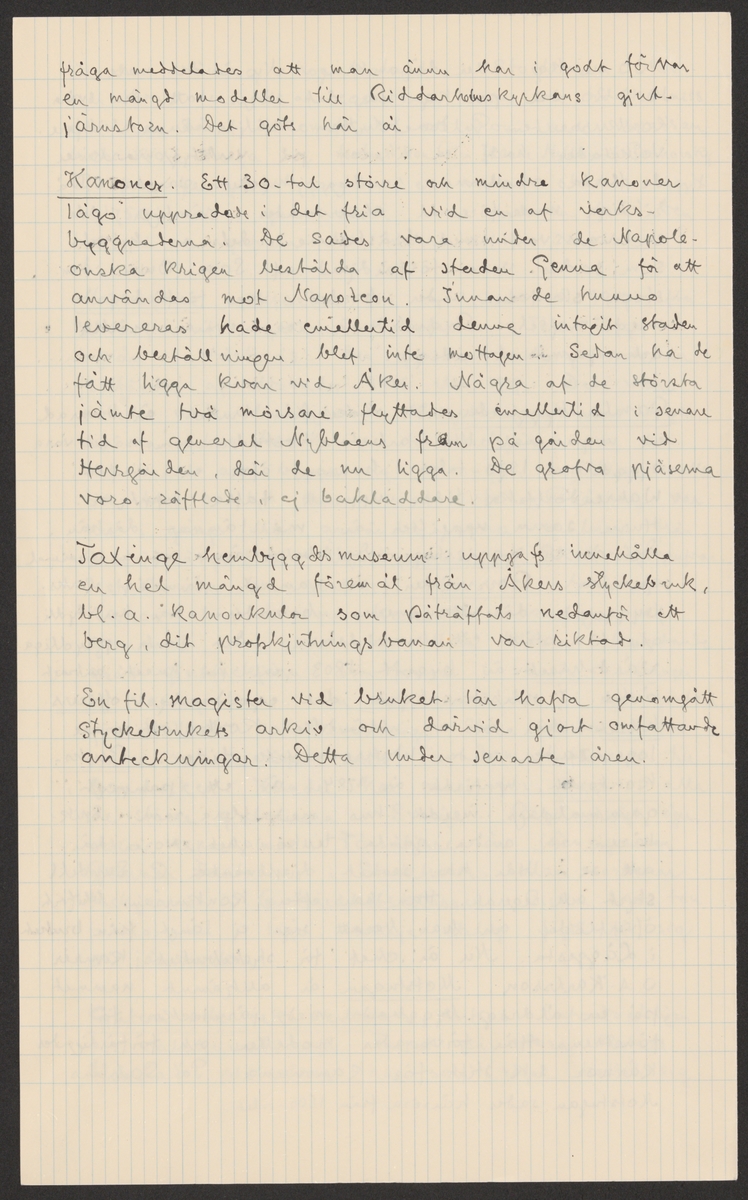 fråga meddelades att man ännu har i godt förvar
en mängd modeller till Riddarholmskyrkans gjut-
järnstorn. Det göts här år
Kanoner. Ett 30-tal större och mindre kanoner
lågo uppradade i det fria vid en af verks-
byggnaderna. De sades vara under de Napole-
onska krigen beställda af staden Genua för att
användas mot Napoleon. Innan de hunno
levereras hade emellertid denne intagit staden
och beställningen blef inte mottagen. Sedan ha de
fått ligga kvar vid Åker. Några af de största
jämte två mörsare flyttades emellertid i senare
tid af general Nyblæus fram på gården vid
Herrgården, där de nu ligga. De grofva pjäserna
voro räfflade, ej bakladdare.
Taxinge hembygdsmuseum uppgafs innehålla
en hel mängd föremål från Åkers styckebruk,
bl. a. kanonkulor som påträffats nedanför ett
berg, dit profskjutningsbanan var riktad.
En fil. magister vid bruket lär hafva genomgått
Styckebrukets arkiv och därvid gjort omfattande
anteckningar. Detta under senaste åren.